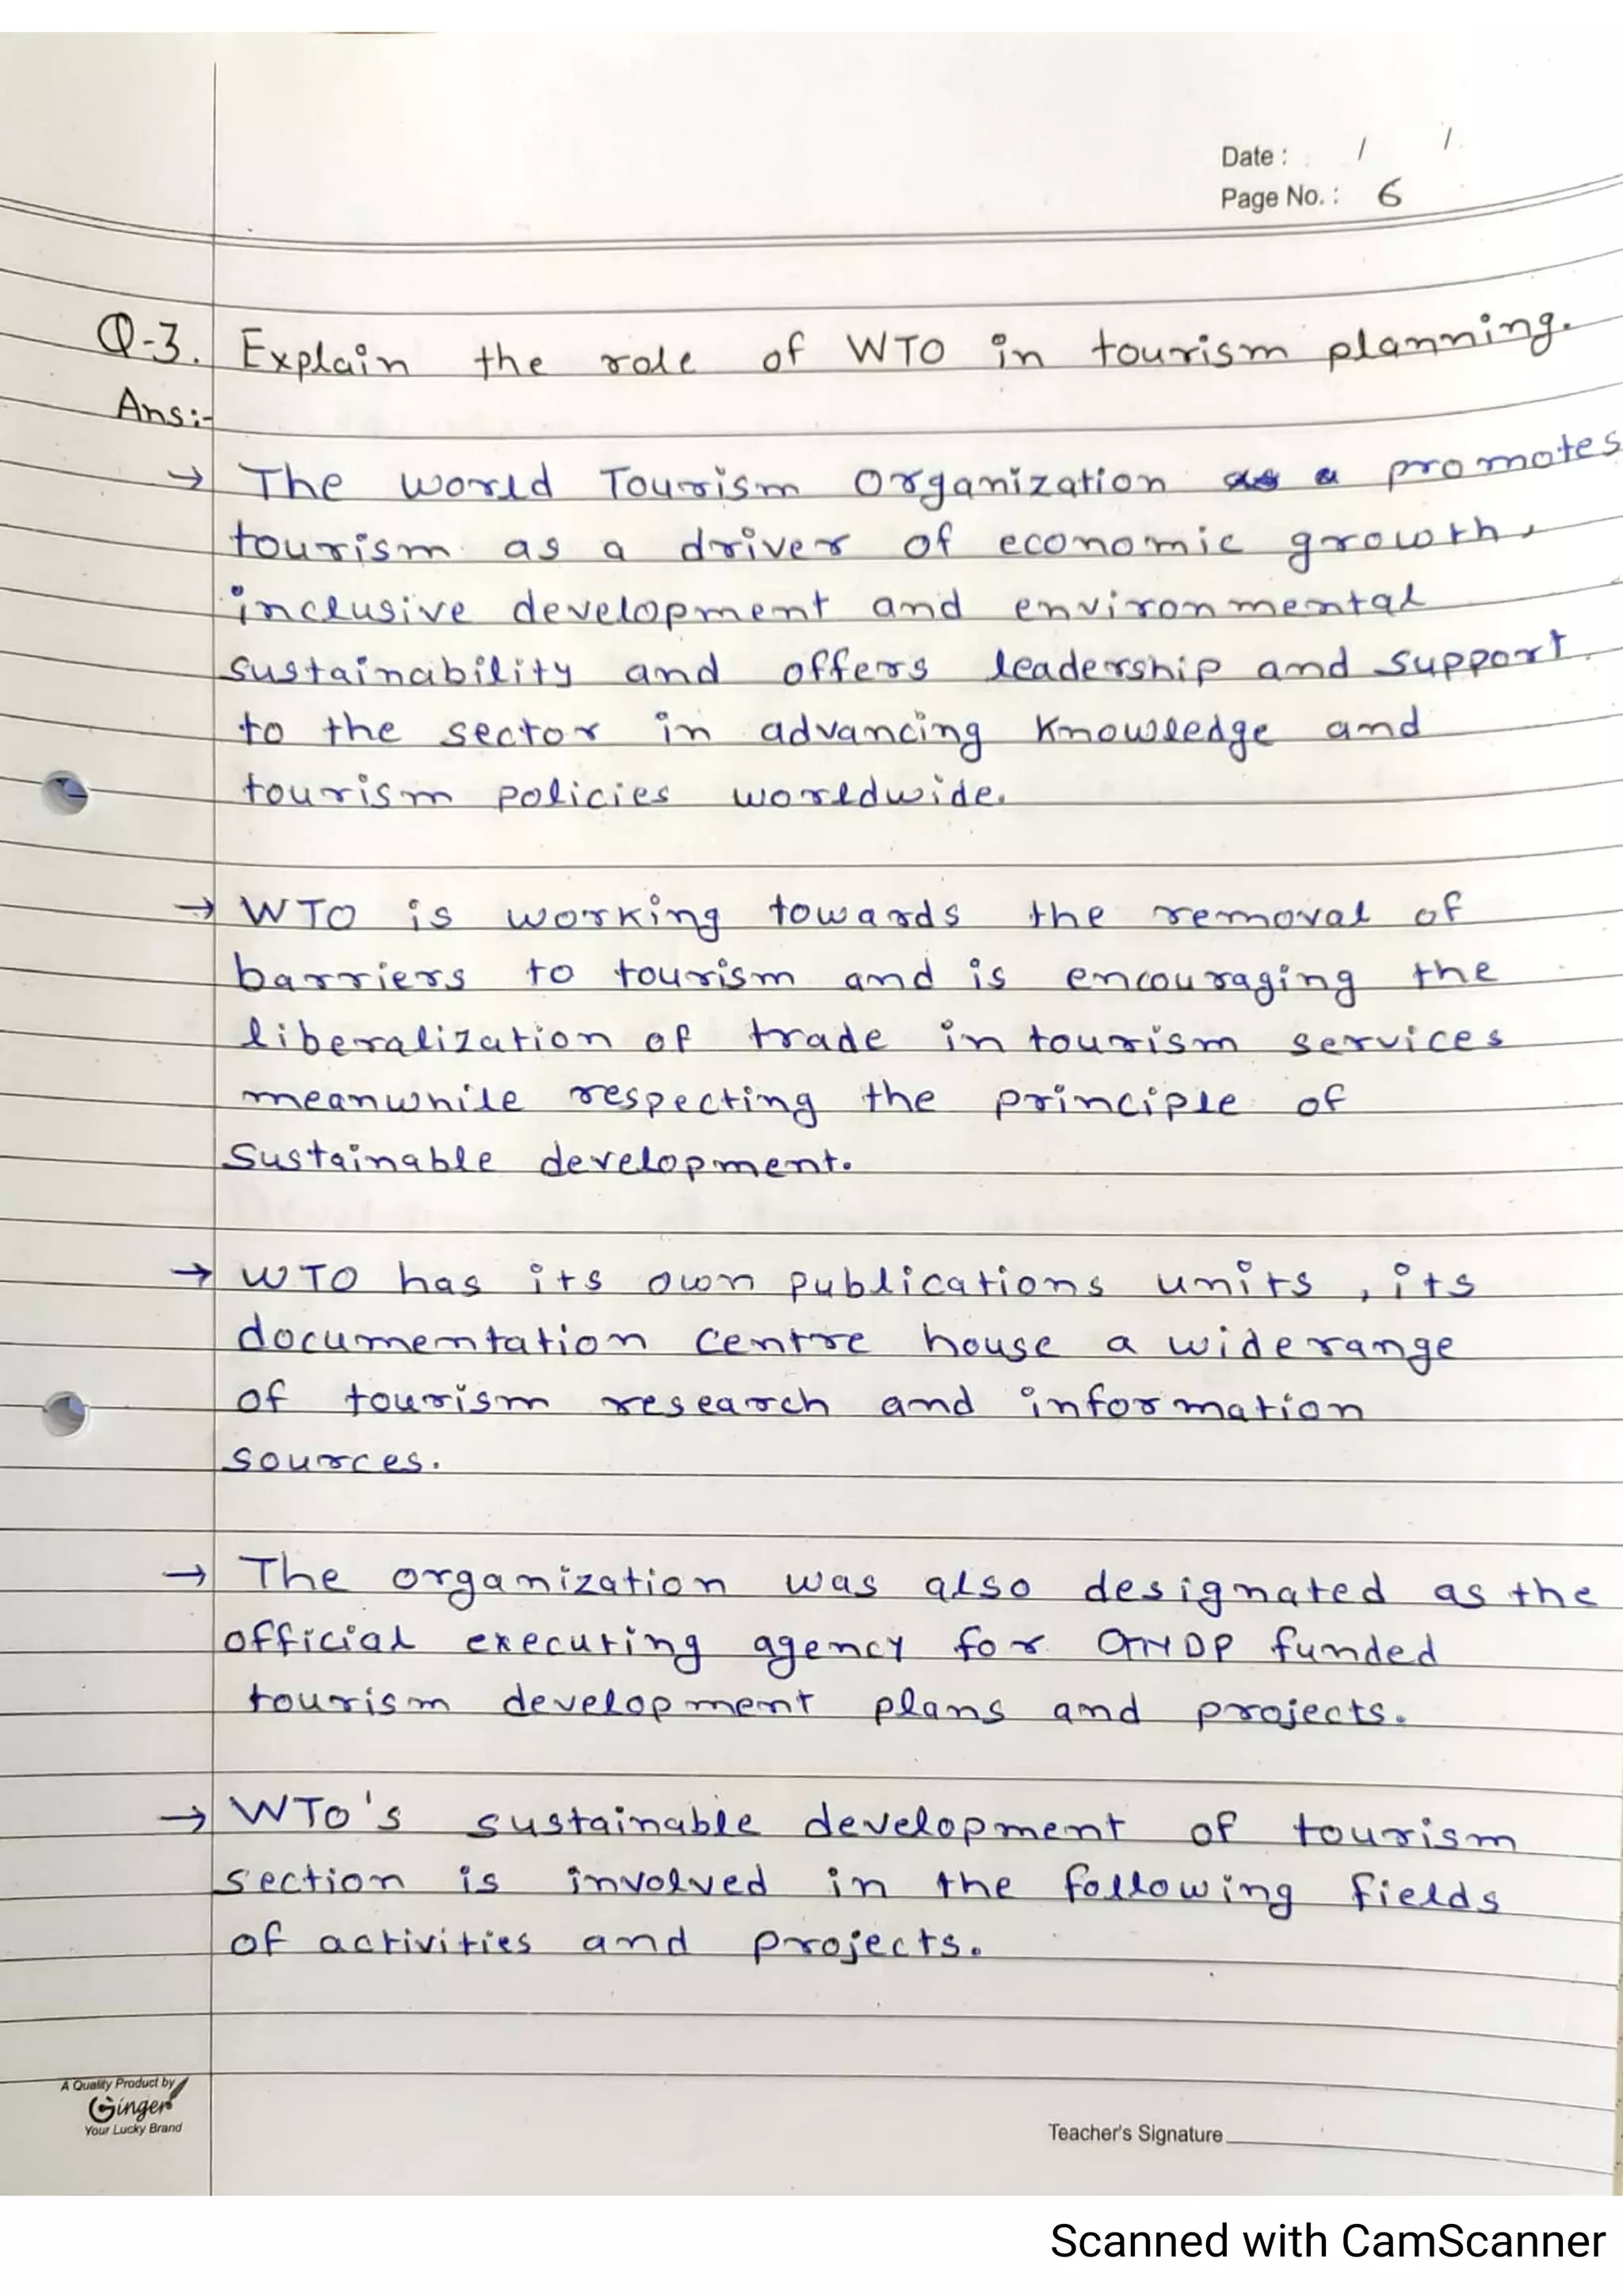 Date : / /
Page No. : 6
Q-3. Explain the role of WTO in tourism planning.
Ans:-
→ The world Tourism Organization promotes
tourism as a driver of economic growth,
inclusive development and environmental
sustainability and offers leadership and support
to the sector in advancing knowledge and
tourism policies worldwide.
→ WTO is working towards the removal of
barriers to tourism and is encouraging the
liberalization of trade in tourism services
meanwhile respecting the principle of
sustainable development.
→ WTO has its own publications units, its
documentation centre house a wide range
of tourism research and information
sources.
→ The organization was also designated as the
official executing agency for funded
tourism development plans and projects.
→ WTO's sustainable development of tourism
section is involved in the following fields
of activities and projects.
A Quality Product by
Ginger
Your Lucky Brand
Teacher's Signature
Scanned with CamScanner